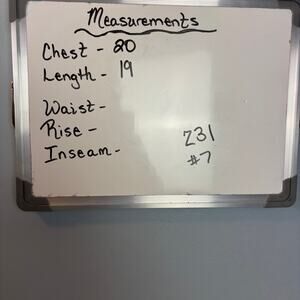 Measurements
Chest - 20
Length - 19
Waist -
Rise -
Inseam -
Z31
#7